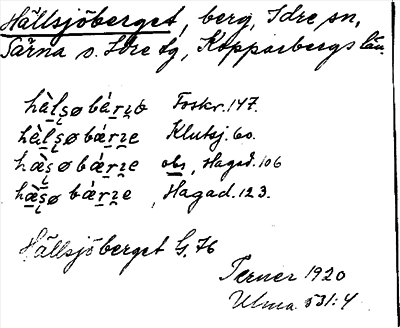 Hällsjöberget, berg, Idre sn,
Särna o. Idre tg, Kopparbergs län.
hàl̥ʂøbá̱r̥ze Foskr. 147.
hàl̥ʂøbǽr̥ze Klutsj. 60.
hæ̀ʂøbǽr̥ze obs, Hagad. 106
hæ̀ʂøbǽr̥ze, Hagad. 123.
Hällsjöberget G. 76
Terner 1920
Ulma 531:4